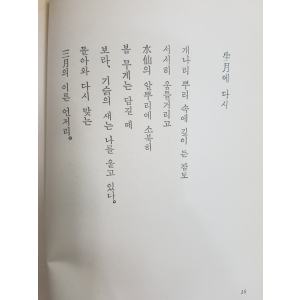 生月에 다시
개나리 뿌리 속에 깊이 든 잠도
서서히 움틀거리고
水仙의 알뿌리에 소복히
봄 무게는 담길 때
보라, 기슭의 새는 나를 울고 있다.
돌아와 다시 맞는
三月의 이른 언저리.
26